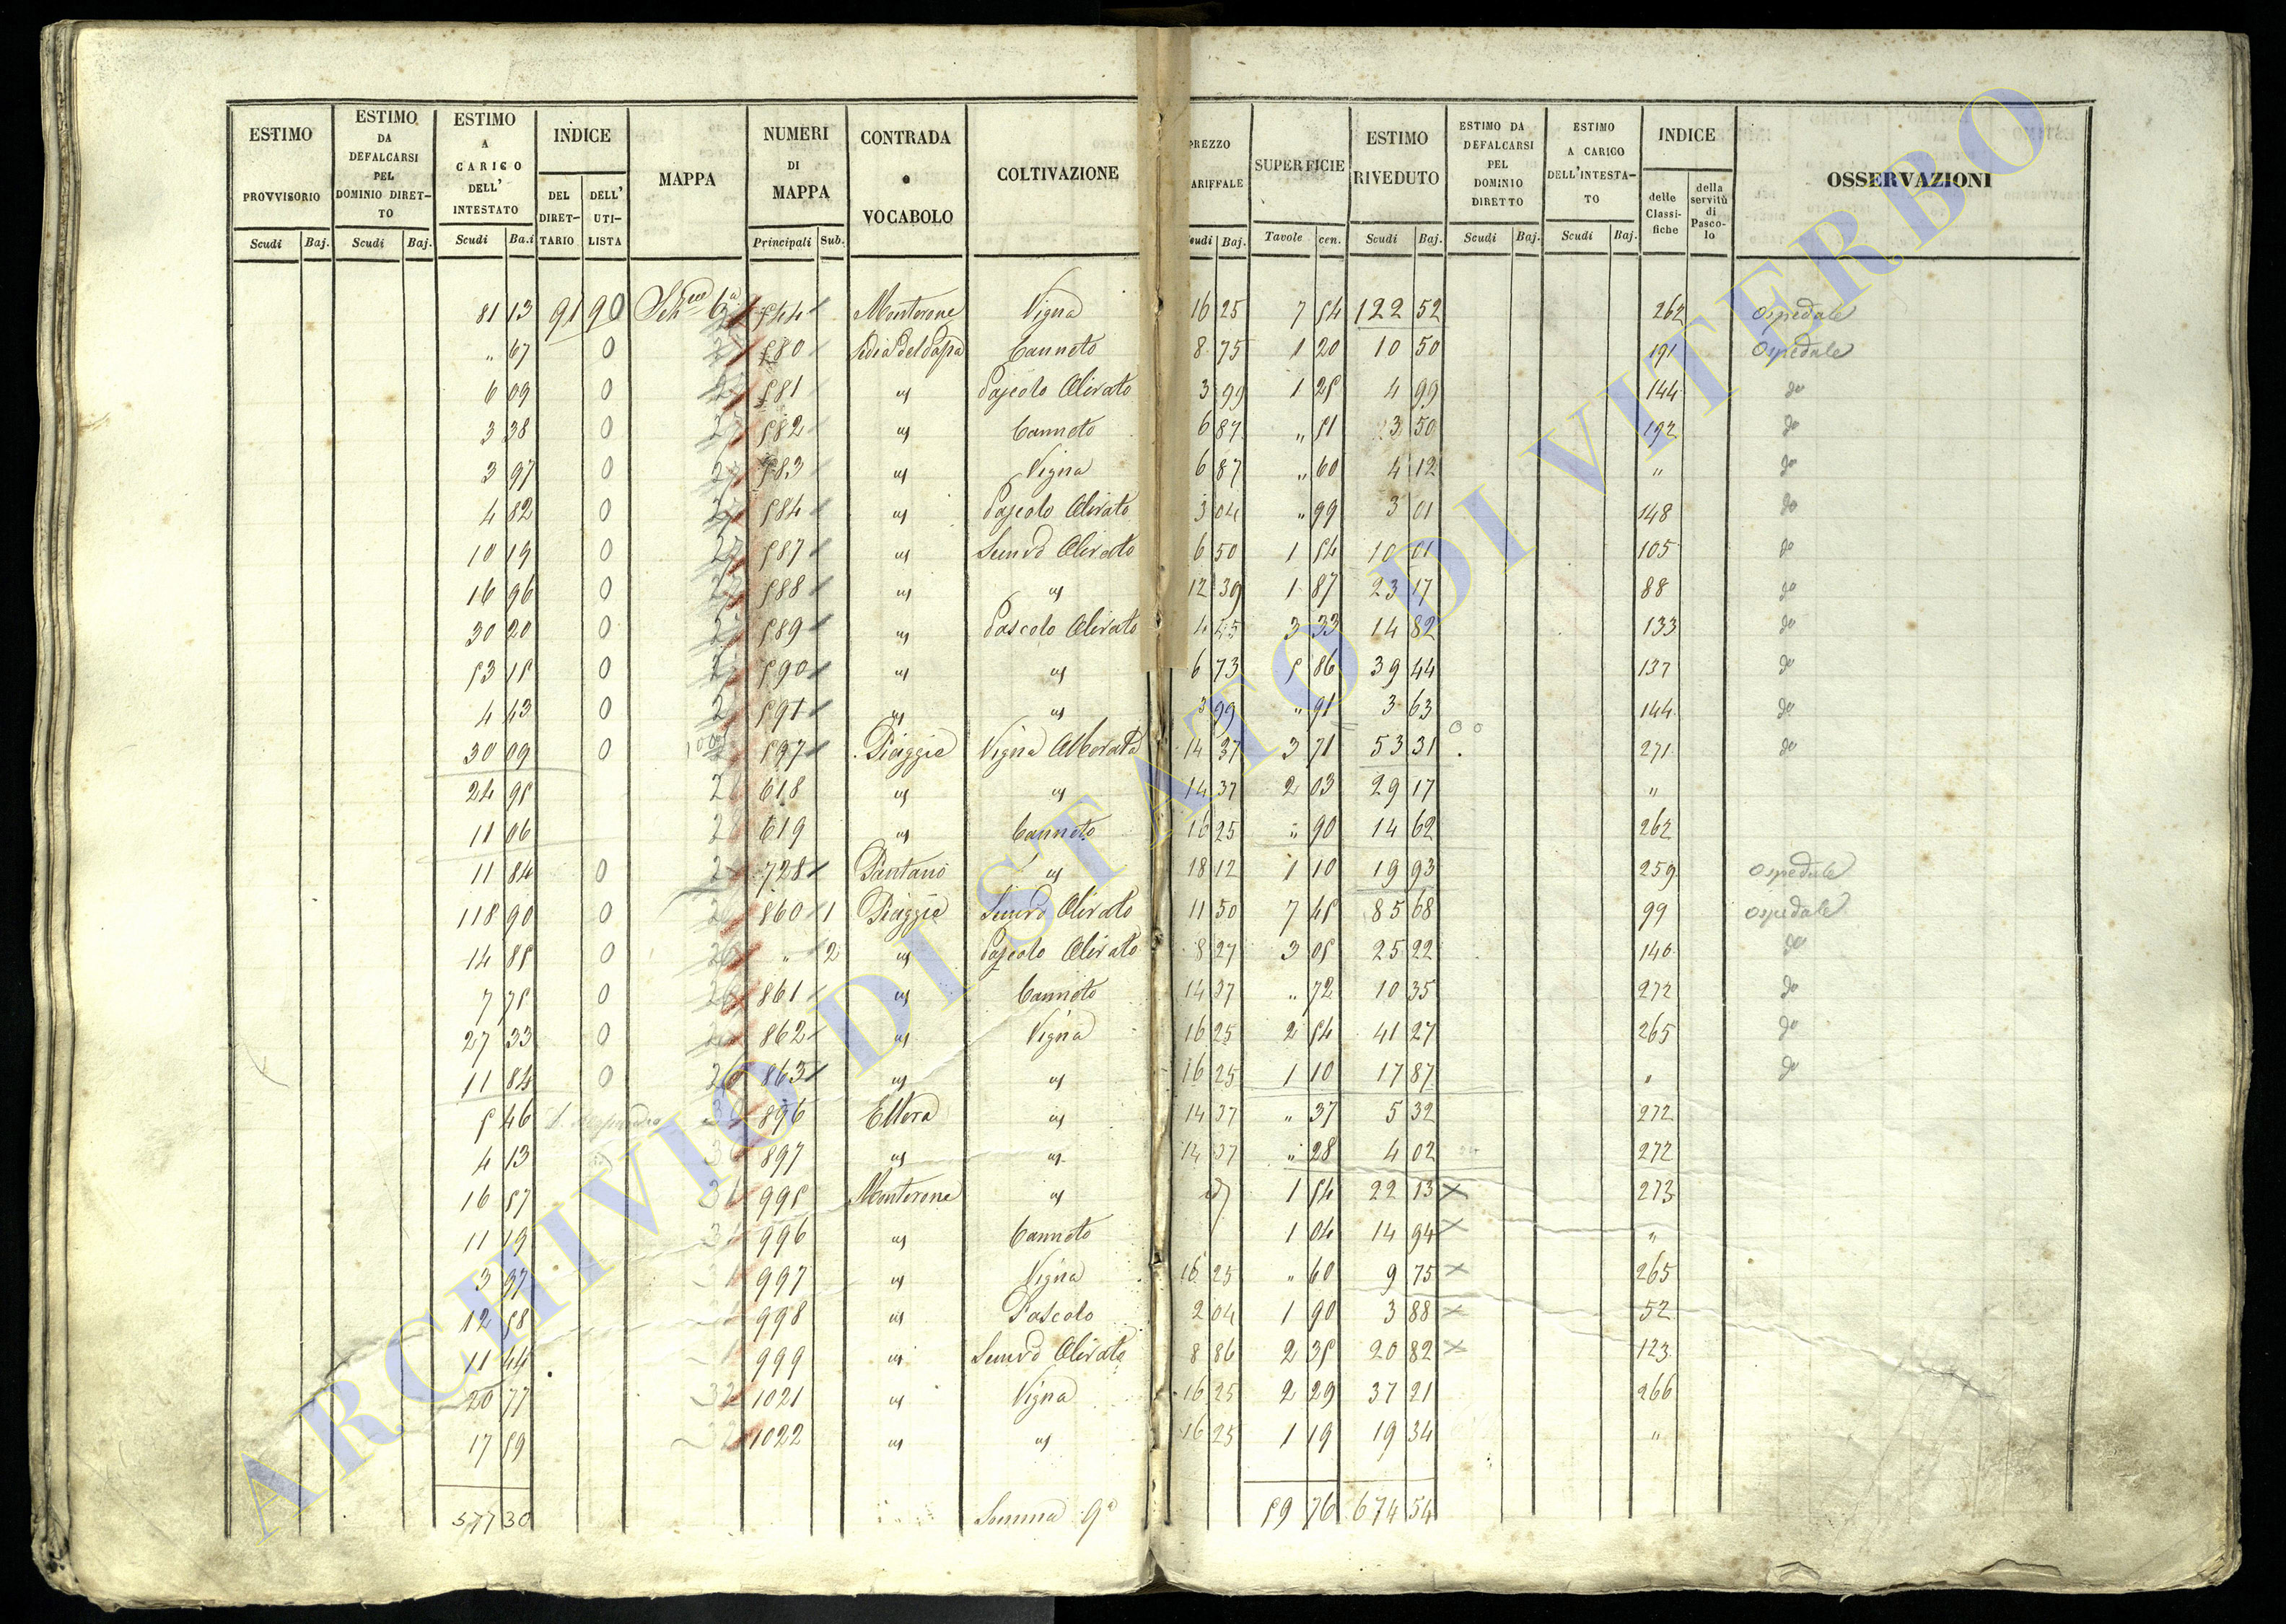 ESTIMO PROVVISORIO Scudi Baj.
ESTIMO DA DEFALCARSI PEL DOMINIO DIRET-TO Scudi Baj.
ESTIMO A CARICO DELL' INTESTATO Scudi Ba.i
INDICE DEL DIRET-TARIO DELL' UTI-LISTA
MAPPA
NUMERI DI MAPPA Principali Sub.
CONTRADA o VOCABOLO
COLTIVAZIONE
PREZZO ARIFFALE eudi Baj.
SUPERFICIE Tavole cen.
ESTIMO RIVEDUTO Scudi Baj.
ESTIMO DA DEFALCARSI PEL DOMINIO DIRETTO Scudi Baj.
ESTIMO A CARICO DELL'INTESTA-TO Scudi Baj.
INDICE delle Classi-fiche della servitù di Pasco-lo
OSSERVAZIONI
81 13 91 90 6a 544 Monterone Vigna 16 25 7 54 122 52 262 Ospedale
" 67 0 580 Sedia del Papa Canneto 8 75 1 20 10 50 191 Ospedale
6 09 0 581 id Pascolo Olivato 3 99 1 25 4 99 144 do
3 38 0 582 id Canneto 6 87 " 51 3 50 192 do
3 97 0 27 583 id Vigna 6 87 " 60 4 12 " do
4 82 0 27 584 id Pascolo Olivato 3 04 " 99 3 01 148 do
10 19 0 27 587 id Semvo Olivato 6 50 1 54 10 01 105 do
16 96 0 27 588 id id 12 39 1 87 23 17 88 do
30 20 0 27 589 id Pascolo Olivato 4 45 3 33 14 82 133 do
53 15 0 590 id id 6 73 5 86 39 44 137 do
4 43 0 591 id id 3 99 " 91 3 63 144 do
30 09 0 597 Piaggie Vigna Alborata 14 37 3 71 53 31 271 do
24 95 618 id id 14 37 2 03 29 17 "
11 06 619 id Canneto 16 25 " 90 14 62 262
11 84 0 728 Pantano id 18 12 1 10 19 93 259 Ospedale
118 90 0 860 1 Piaggie Semvo Olivato 11 50 7 45 85 68 99 Ospedale
14 85 0 26 " 2 id Pascolo Olivato 8 27 3 05 25 22 140 do
7 75 0 26 861 id Canneto 14 37 " 72 10 35 272 do
27 33 0 862 id Vigna 16 25 2 54 41 27 265 do
11 84 0 26 863 id id 16 25 1 10 17 87 " do
5 46 896 Ellera id 14 37 " 37 5 32 272
4 13 897 id id 14 37 " 28 4 02 272
16 57 31 995 Monterone id id 1 54 22 13 x 273
11 19 31 996 id Canneto 1 04 14 94 x "
3 97 997 id Vigna 16 25 " 60 9 75 x 265
12 58 998 id Pascolo 2 04 1 90 3 88 x 52
11 44 999 id Semvo Olivato 8 86 2 35 20 82 x 123
20 77 32 1021 id Vigna 16 25 2 29 37 21 266
17 59 32 1022 id id 16 25 1 19 19 34 "
577 30 Somma 59 76 674 54
ARCHIVIO DI STATO DI VITERBO